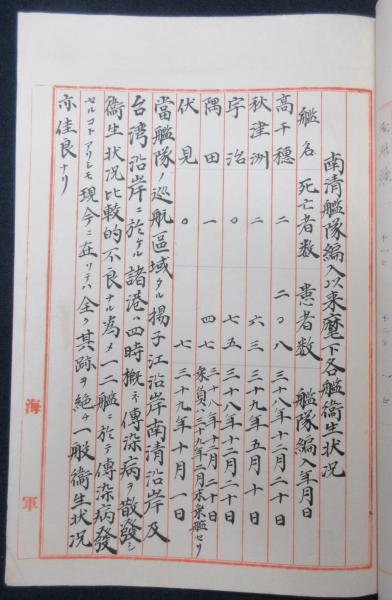 南清艦隊編入以来麾下各艦衞生状况
艦名 死亡者数 患者数 艦隊編入年月日
高千穂 二 二〇八 三十八年十二月二十日
秋津洲 二 六三 三十九年五月十日
宇治 〇 七五 三十八年十二月二十日
隅田 一 四七 三十八年十二月二十日
乗員ハ三十九年二月末乗艦セリ
伏見 〇 七 三十九年十月一日
當艦隊ノ巡航區域タル揚子江沿岸南清沿岸及
台湾沿岸ニ於ケル諸港ハ四時概ネ傳染病ヲ散發シ
衞生状况比較的不良ナル為メ一二艦ニ於テ傳染病發
セルコトアリシモ現今ニ在リテハ全ク其跡ヲ絶チ一般衞生状况
亦佳良ナリ
海軍